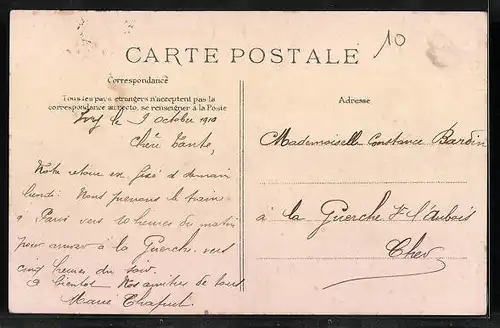 10
CARTE POSTALE
Correspondance
Tous les pays étrangers n'acceptent pas la
correspondance au recto, se renseigner à la Poste
le 9 octobre 1910
Chère Tante,
Notre retour est fixé à demain
lundi. Nous prenons le train
à Paris vers 10 heures du matin
pour arriver à la Guerche vers
cinq heures du soir.
à bientôt Nos amitiés de tous
Marie Chapuet
Adresse
Mademoiselle Constance Bardin
à la Guerche s/ l'Aubois
Cher